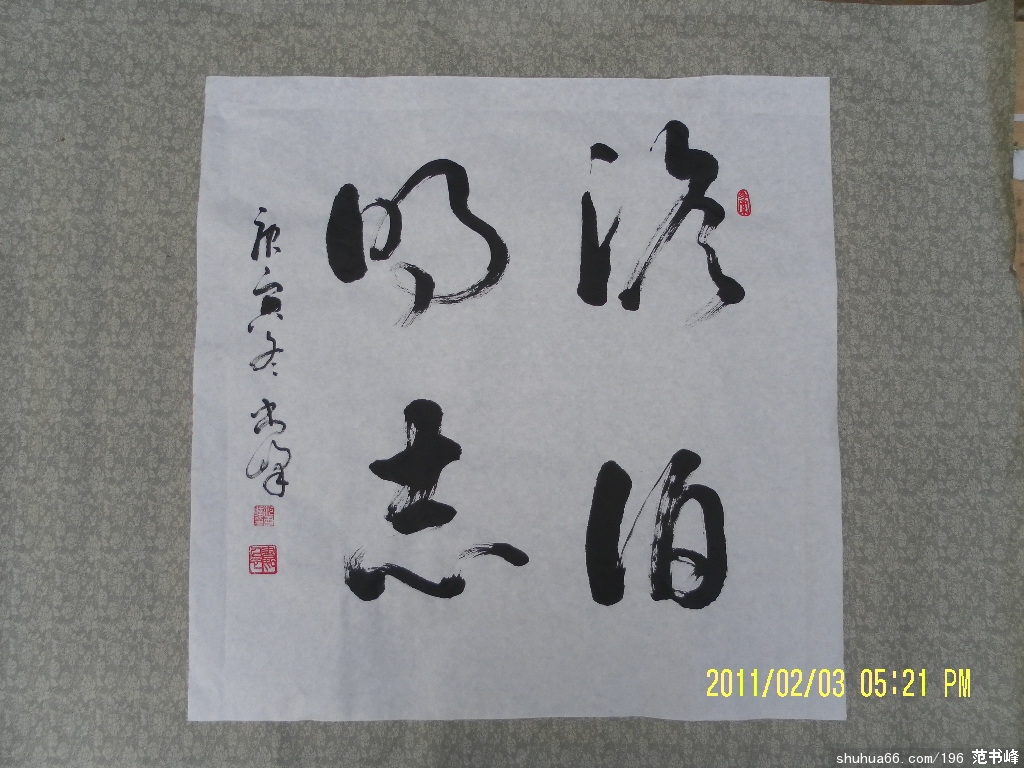 淡泊
明志
庚寅冬书峰
2011/02/03 05:21 PM
shuhua66.com/196 范书峰